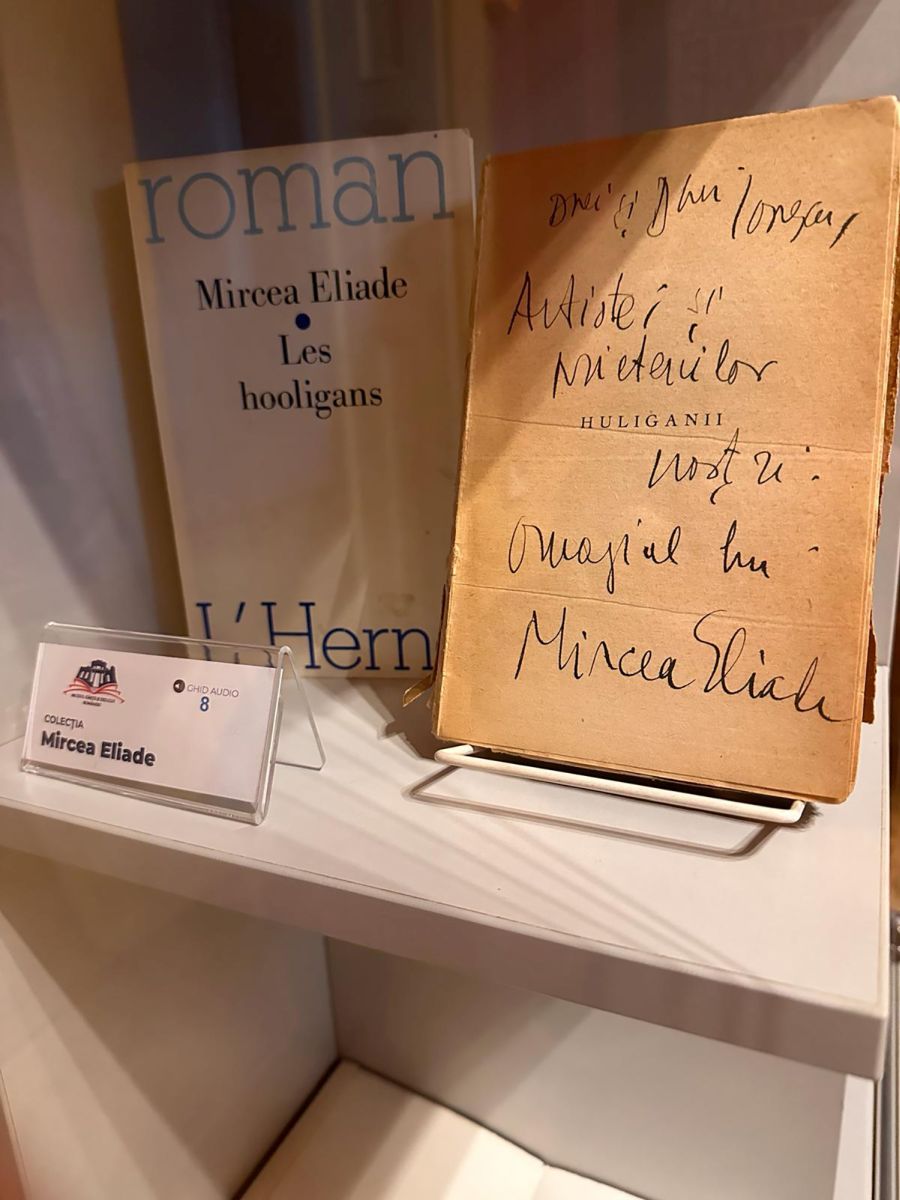 roman
Mircea Eliade
Les
hooligans
L'Hern
Dnei și Dlui Ionescu,
Artistei și
prietenilor
HULIGANII
noștri:
Omagiul lui
Mircea Eliade
GHID AUDIO
8
COLECȚIA
Mircea Eliade